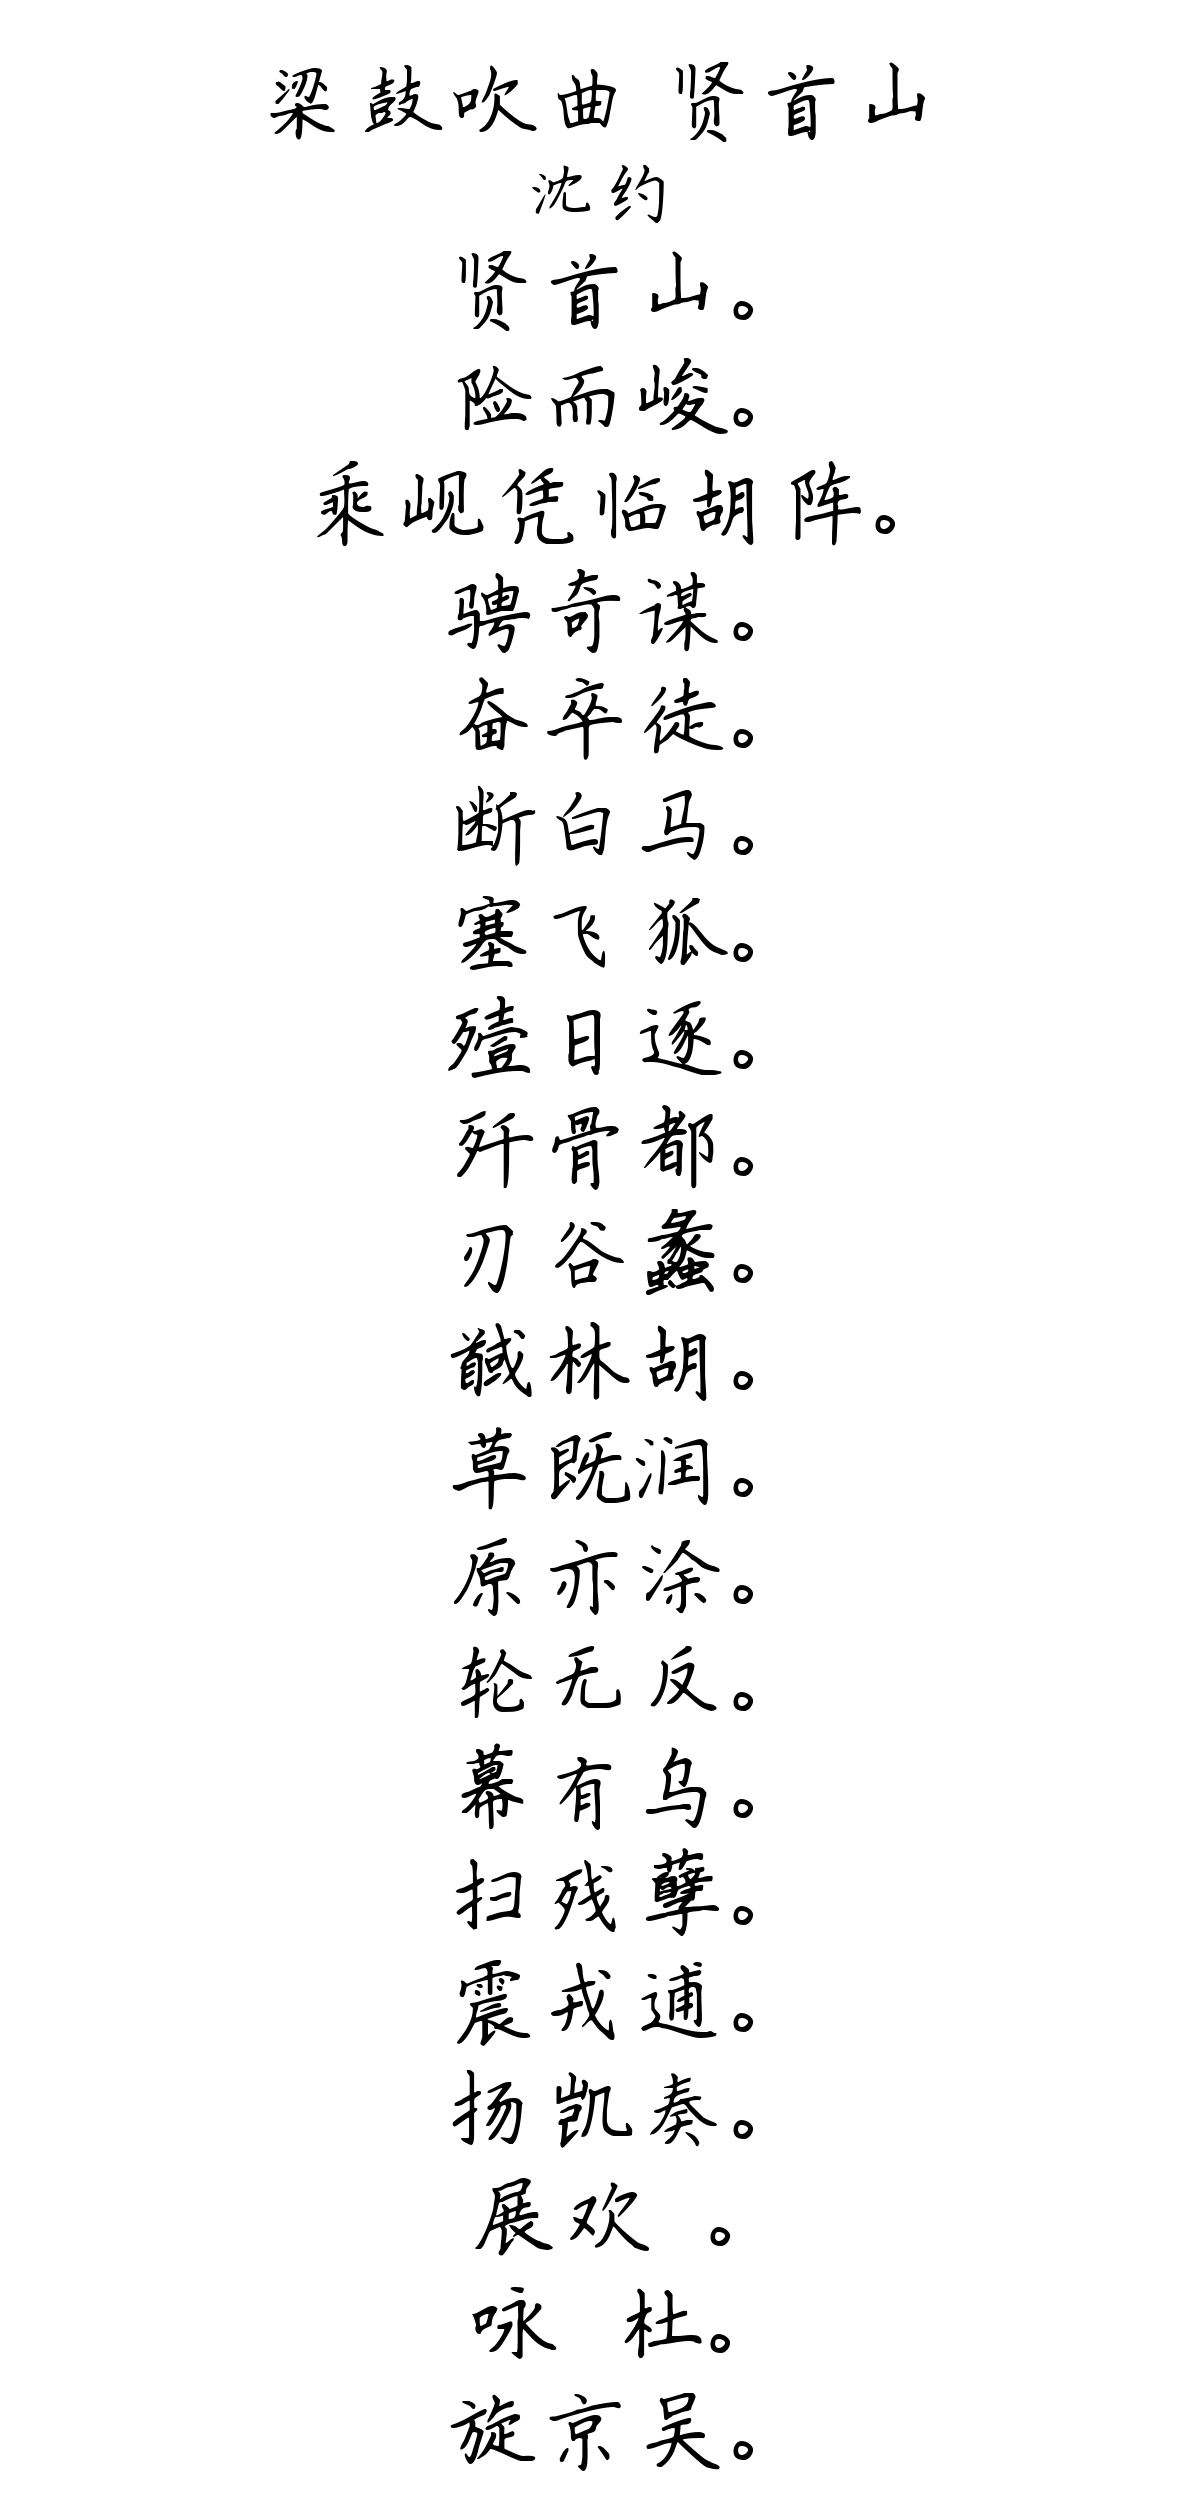 梁鼓吹曲 贤首山
沈约
贤首山。
险而峻。
乘岘凭临胡阵。
骋奇谋。
奋卒徒。
断白马。
塞飞狐。
殪日逐。
歼骨都。
刃谷蠡。
馘林胡。
草既润。
原亦涂。
轮无反。
幕有乌。
扫残孽。
震戎逋。
扬凯奏。
展欢 。
咏 杜。
旋京吴。